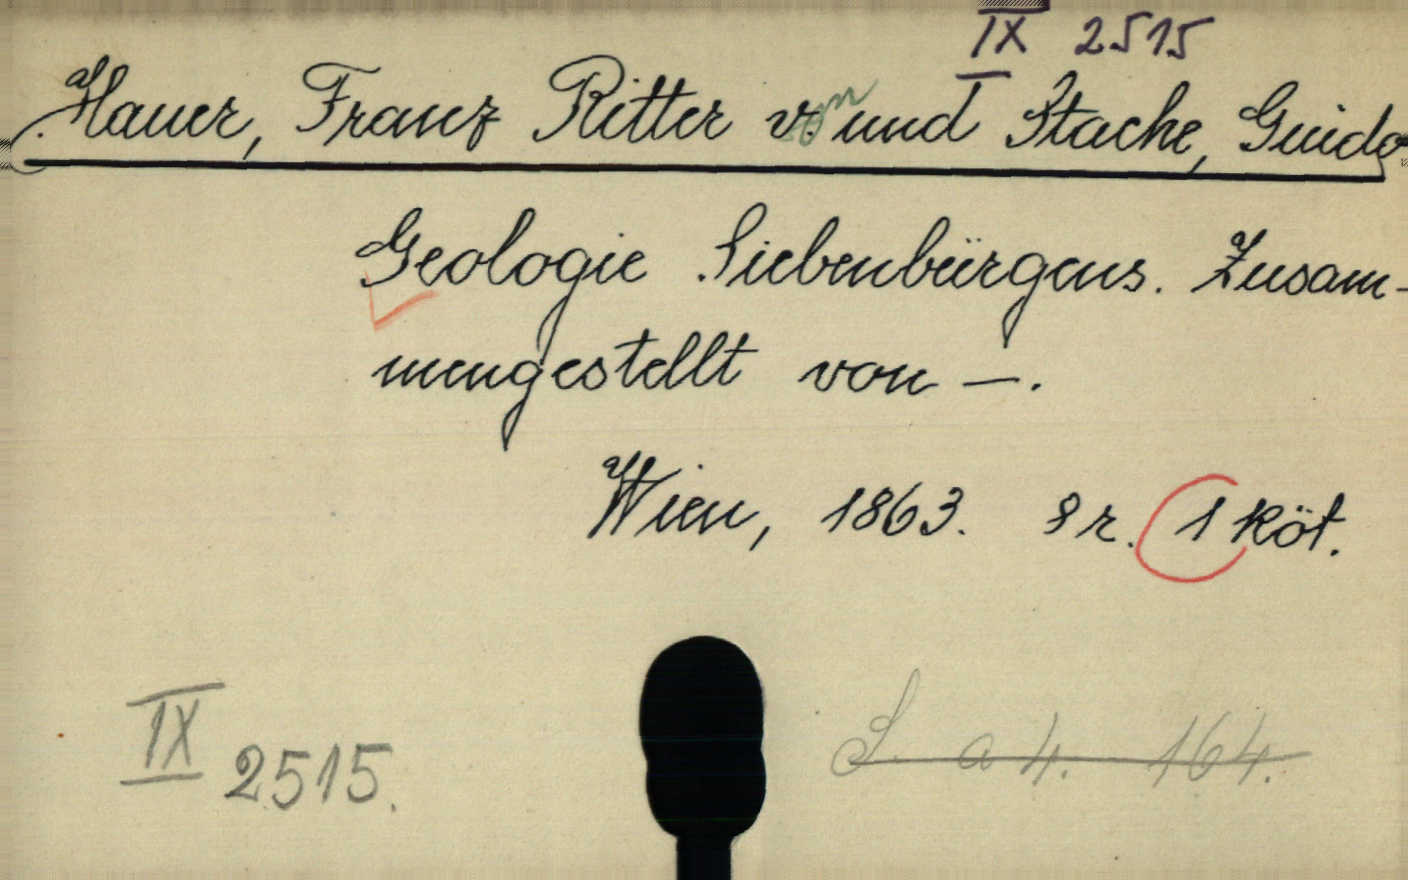 IX 2515
Hauer, Franz Ritter v. und Stache, Guido
Geologie Siebenbürgens. Zusam-
mengestellt von —.
Wien, 1863. 8 r. 1 köt.
IX 2515.
S. a 4. 164.